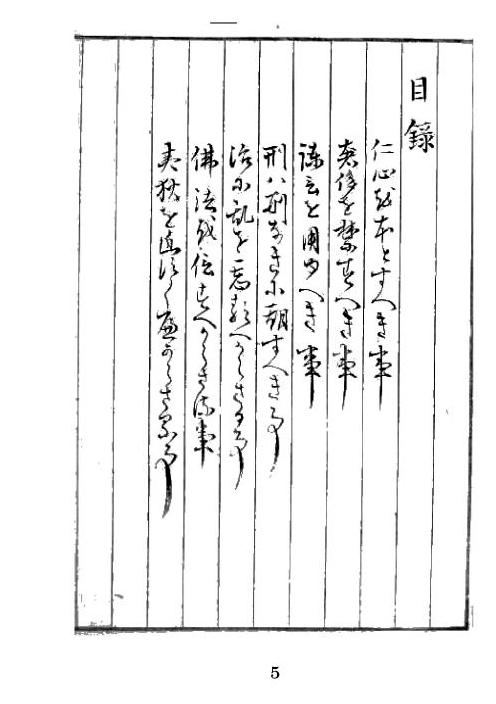 目錄
仁心を本とすへき事
奢侈を禁すへき事
諫言を用ゆへき事
刑ハ刑なきに期すへき事
治に乱を忘るへからさる事
佛法を信すへからさる事
夷狄を近つくへからさる事
5